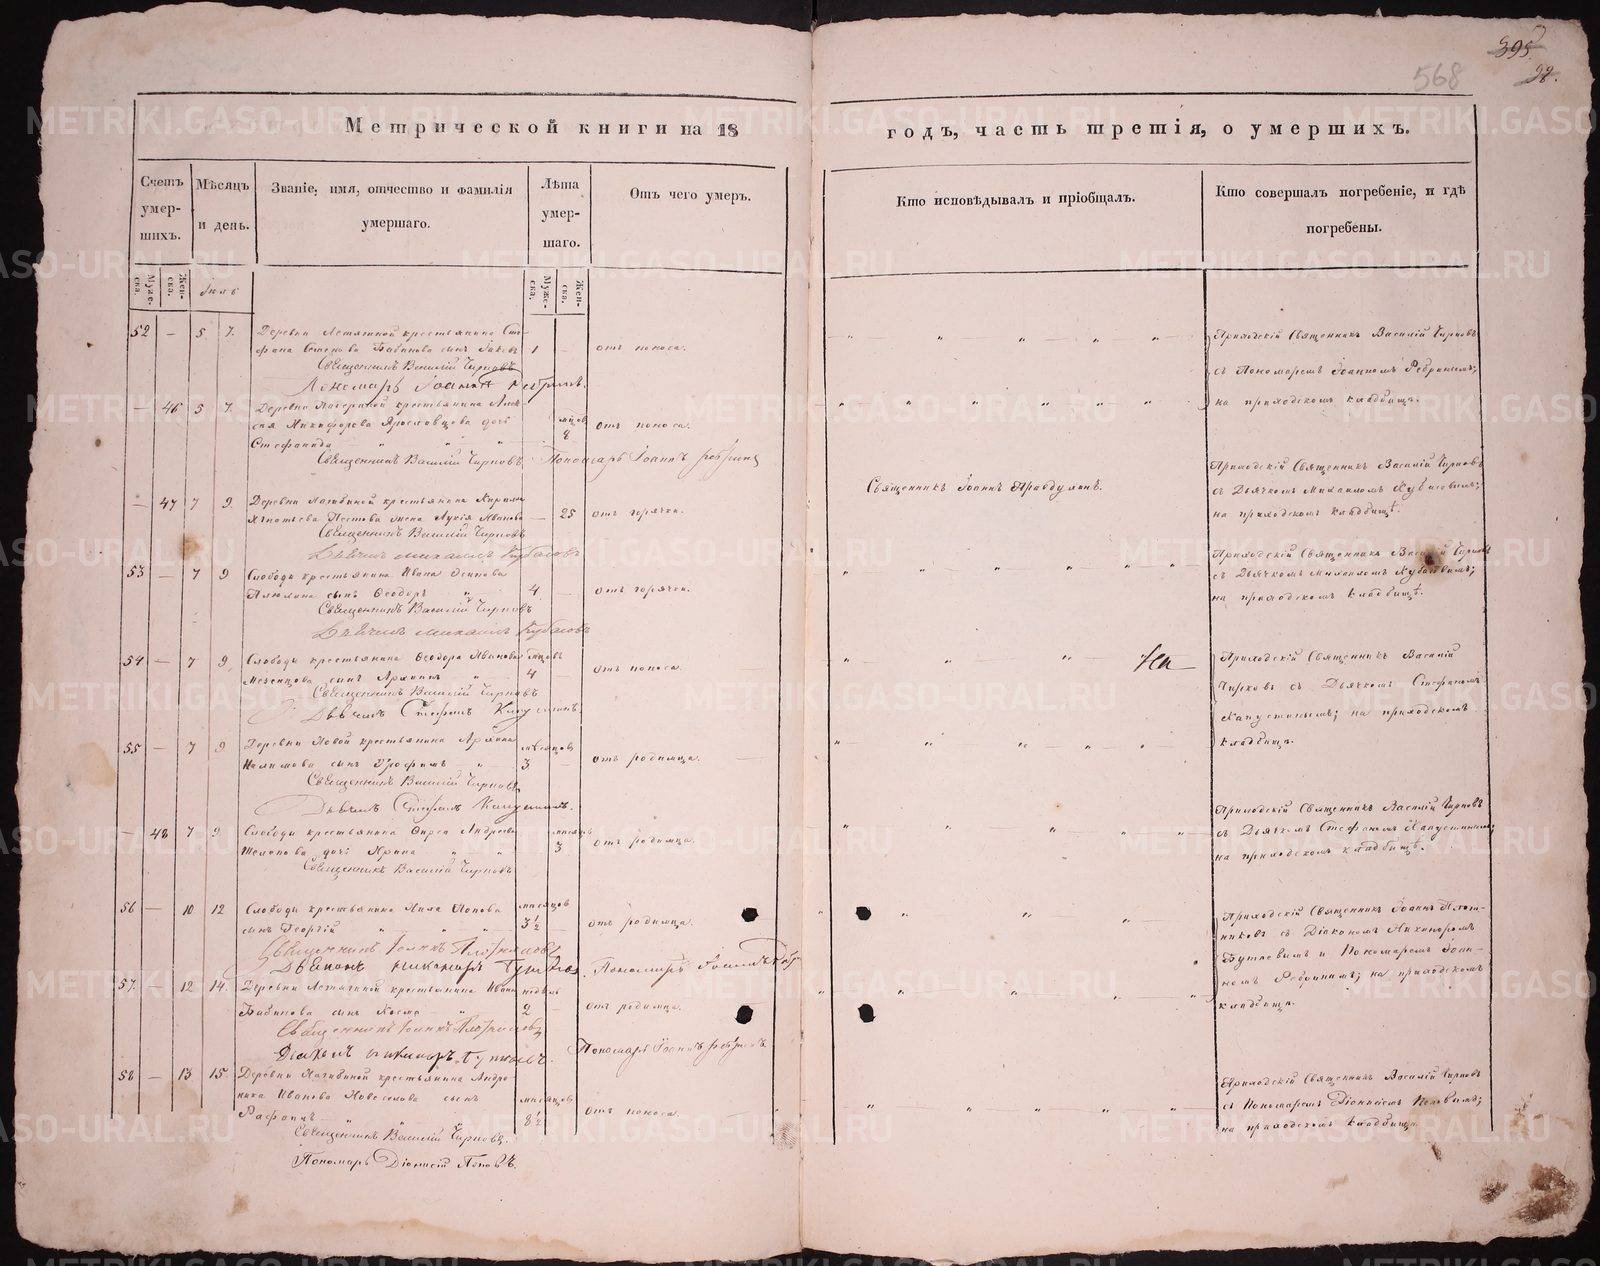 395.
98.
568
Метрической книги на 18 годъ, часть третія, о умершихъ.
Счетъ умер-шихъ.
Мѣсяцъ и день.
Званіе, имя, отчество и фамилія умершаго.
Лѣта умер-шаго.
Отъ чего умеръ.
Кто исповѣдывалъ и пріобщалъ.
Кто совершалъ погребеніе, и гдѣ погребены.
Муже-ска.
Жен-ска.
Іюль
Муже-ска.
Жен-ска.
52 — 5 7. Деревни крестьянина Сте-
фана Семенова Бабинова сынъ 1 — отъ поноса.
Священникъ Василій Чирковъ
Пономарь Іоаннъ Ребринъ.
Приходскій Священникъ Василій Чирковъ
съ Пономаремъ Іоанномъ Ребринымъ;
на приходскомъ кладбищѣ.
— 46 5 7. Деревни крестьянина Але-
сія Никифорова Ярославцова дочь мѣсяцовъ
Стефанида 8 отъ поноса.
Священникъ Василій Чирковъ Пономарь Іоаннъ Ребринъ
— 47 7 9. Деревни Лагивиной крестьянина Кирила
Пестова жена Лукія Иванова — 25 отъ горячки.
Священникъ Василій Чирковъ
Дьячекъ Михаилъ Кубасовъ
Священникъ Іоаннъ
Приходскій Священникъ Василій Чирковъ
съ Дьячкомъ Михаиломъ Кубасовымъ;
на приходскомъ кладбищѣ.
53 — 7 9 Слободы крестьянина Ивана Осипова
сынъ Ѳеодоръ 4 — отъ горячки.
Священникъ Василій Чирковъ
Дьячекъ Михаилъ Кубасовъ
Приходскій Священникъ Василій Чирковъ
съ Дьячкомъ Михаиломъ Кубасовымъ;
на приходскомъ кладбищѣ.
54 — 7 9. Слободы крестьянина Ѳеодора Иванова мѣсяцовъ
Мезенцова сынъ 4 — отъ поноса.
Священникъ Василій Чирковъ
Дьячекъ Стефанъ Капустинъ.
Приходскій Священникъ Василій
Чирковъ съ Дьячкомъ Стефаномъ
Капустинымъ; на приходскомъ
кладбищѣ.
55 — 7 9 Деревни Новой крестьянина мѣсяцовъ
Налимова сынъ Трофимъ 3 — отъ родимца.
Священникъ Василій Чирковъ
Дьячекъ Стефанъ Капустинъ.
— 48 7 9. Слободы крестьянина Андреева мѣсяцъ
дочь Ирина 3 отъ родимца.
Священникъ Василій Чирковъ
Приходскій Священникъ Василій Чирковъ
съ Дьячкомъ Стефаномъ Капустинымъ;
на приходскомъ кладбищѣ.
56 — 10 12 Слободы крестьянина Нила Попова мѣсяцовъ
сынъ Георгій 3½ — отъ родимца.
Священникъ Іоаннъ Плотниковъ
Діаконъ Никаноръ Бутаковъ. Пономарь Іоаннъ Ребр
Приходскій Священникъ Іоаннъ Плот-
никовъ съ Діакономъ Никаноромъ
Бутаковымъ и Пономаремъ Іоан-
номъ Ребринымъ; на приходскомъ
кладбищѣ.
57. — 12 14. Деревни крестьянина Ивана недѣль
Бабинова сынъ Косма 2 — отъ родимца.
Священникъ Іоаннъ Плотниковъ
Діаконъ Никаноръ Бутаковъ. Пономарь Іоаннъ Ребринъ
58 — 13 15. Деревни Лагивиной крестьянина Андро-
ника Иванова Новоселова сынъ мѣсяцовъ
Рафаилъ 8½ отъ поноса.
Священникъ Василій Чирковъ.
Пономарь Діонисій Поповъ.
Приходскій Священникъ Василій Чирковъ
съ Пономаремъ Діонисіемъ Поповымъ;
на приходскомъ кладбищѣ.
METRIKI.GASO-URAL.RU